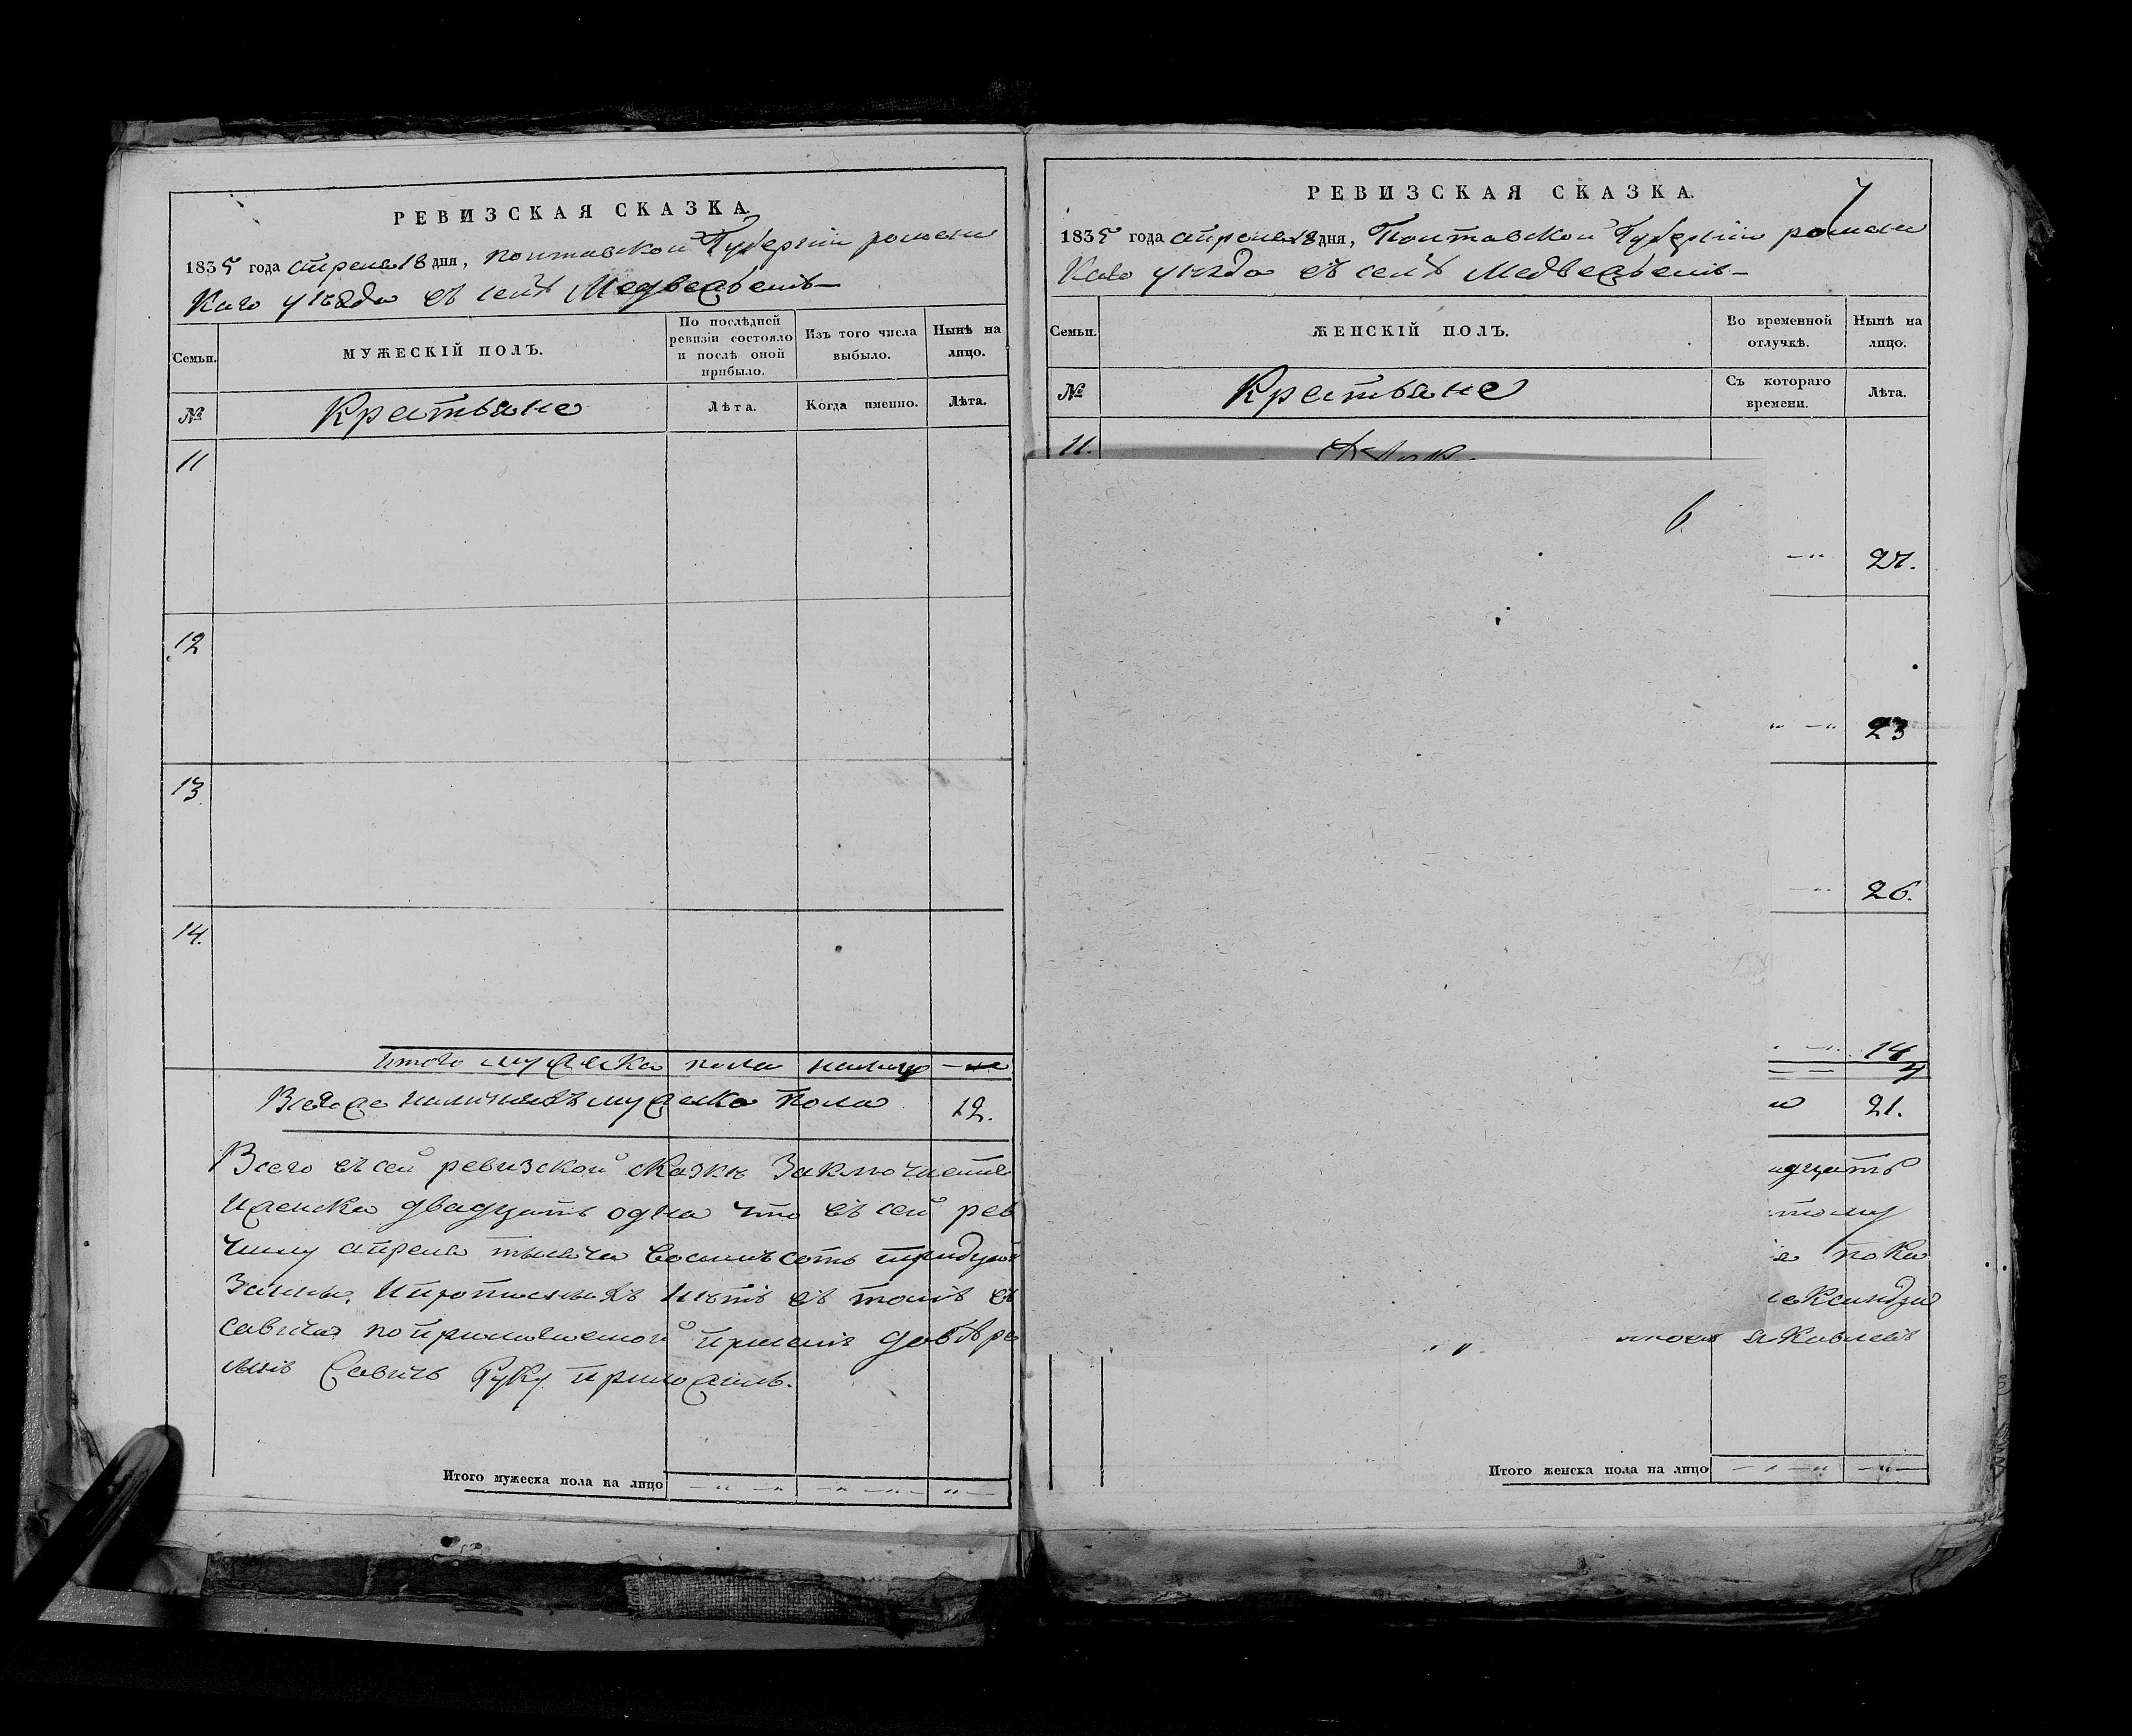 РЕВИЗСКАЯ СКАЗКА.
1835 года апреля 18 дня, полтавской Губернии ромен
каго уѣзда въ селѣ Медвежьемъ
Семьи. МУЖЕСКІЙ ПОЛЪ. По послѣдней ревизіи состояло и послѣ оной прибыло. Изъ того числа выбыло. Нынѣ на лицо.
№ Крестьяне Лѣта. Когда именно. Лѣта.
11
12
13
14.
итого мужеска пола налицо
Всего же наличныхъ мужеска пола 12.
Всего въ сей ревизской сказкѣ заключается
женска двадцать одна что въ сей рев
числу апреля тысяча восемъсотъ тридцат
заны, и прописныхъ нѣтъ въ томъ
савича по приложенной
Савичь руку приложилъ.
Итого мужеска пола на лицо
РЕВИЗСКАЯ СКАЗКА.
7
1835 года апреля 18 дня, Полтавской Губернии ромен
каго уѣзда въ селѣ Медвежьемъ
Семьи. ЖЕНСКІЙ ПОЛЪ. Во временной отлучкѣ. Нынѣ на лицо.
№ Крестьяне Съ котораго времени. Лѣта.
11.
6
27.
23
26.
14
21.
адцать
тому
пока
лександра
яковлевъ
Итого женска пола на лицо